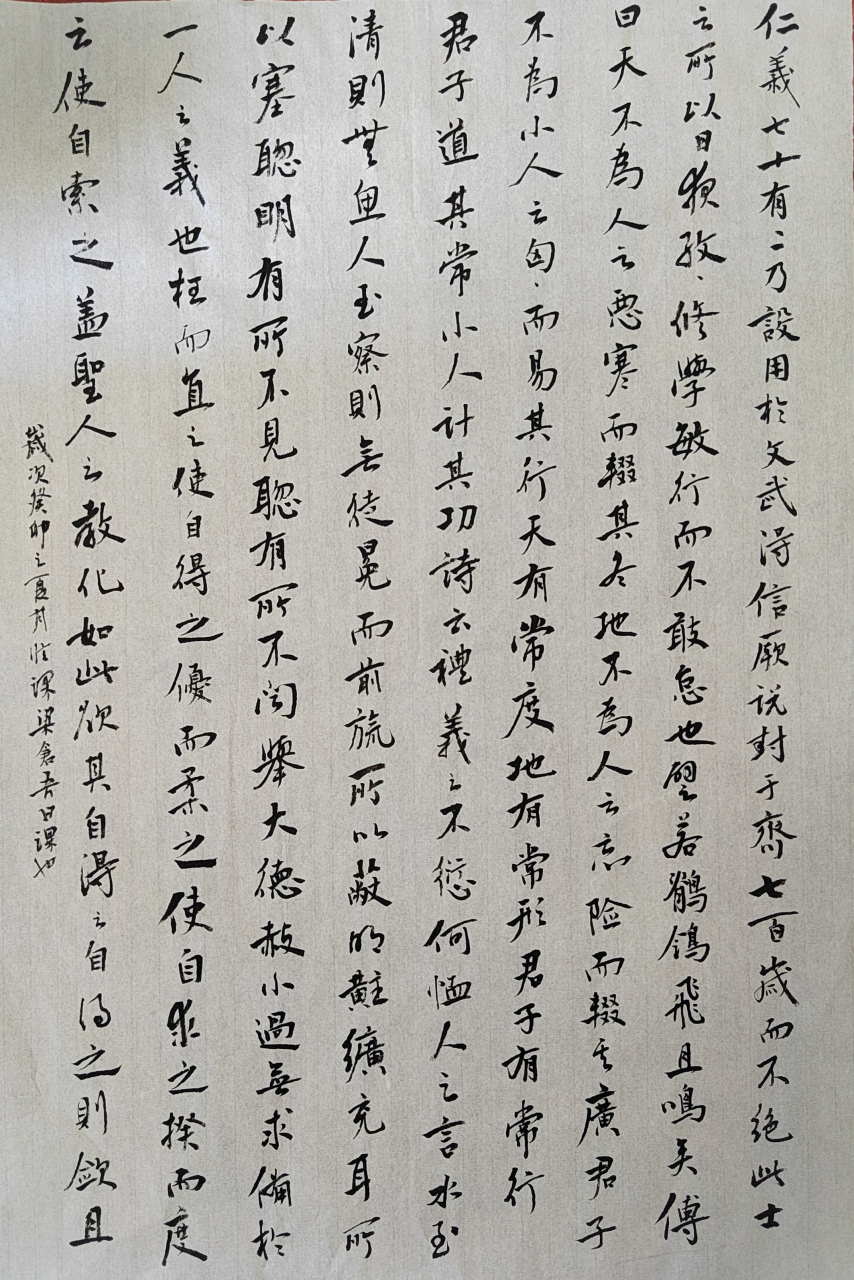 仁義七十有二乃設用於文武得信厥説封于齊七百歲而不絕此士
之所以日夜孜〻修學敏行而不敢怠也譬若鶺鴒飛且鳴矣傳
曰天不為人之惡寒而輟其冬地不為人之忘險而輟其廣君子
不為小人之匈〻而易其行天有常度地有常形君子有常行
君子道其常小人計其功詩云禮義之不愆何恤人之言水至
清則無魚人至察則無徒冕而前旒所以蔽明黈纊充耳所
以塞聰明有所不見聰有所不聞舉大德赦小過無求備於
一人之義也枉而直之使自得之優而柔之使自求之揆而度
之使自索之蓋聖人之教化如此欲其自得之自得之則敏且
歲次癸卯之夏月臨課梁倉吾日課也